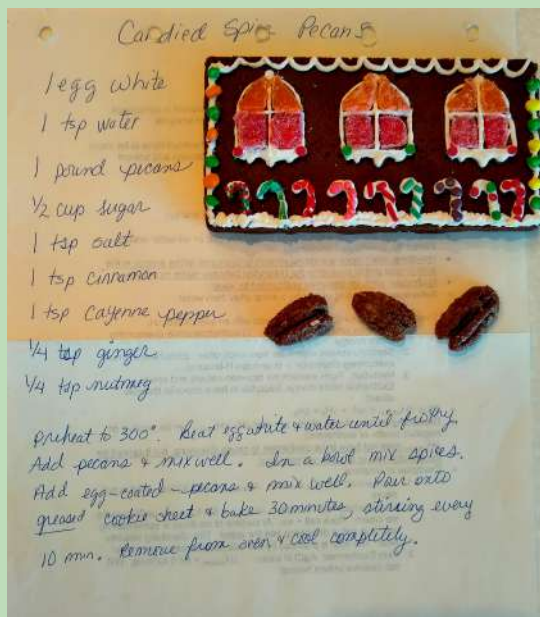 Candied Spice Pecans
1 egg white
1 tsp water
1 pound pecans
1/2 cup sugar
1 tsp salt
1 tsp cinnamon
1 tsp Cayenne pepper
1/4 tsp ginger
1/4 tsp nutmeg
Preheat to 300°. Beat egg white & water until frothy.
Add pecans & mix well. In a bowl mix spices.
Add egg-coated-pecans & mix well. Pour onto
greased cookie sheet & bake 30 minutes, stirring every
10 min. Remove from oven & cool completely.